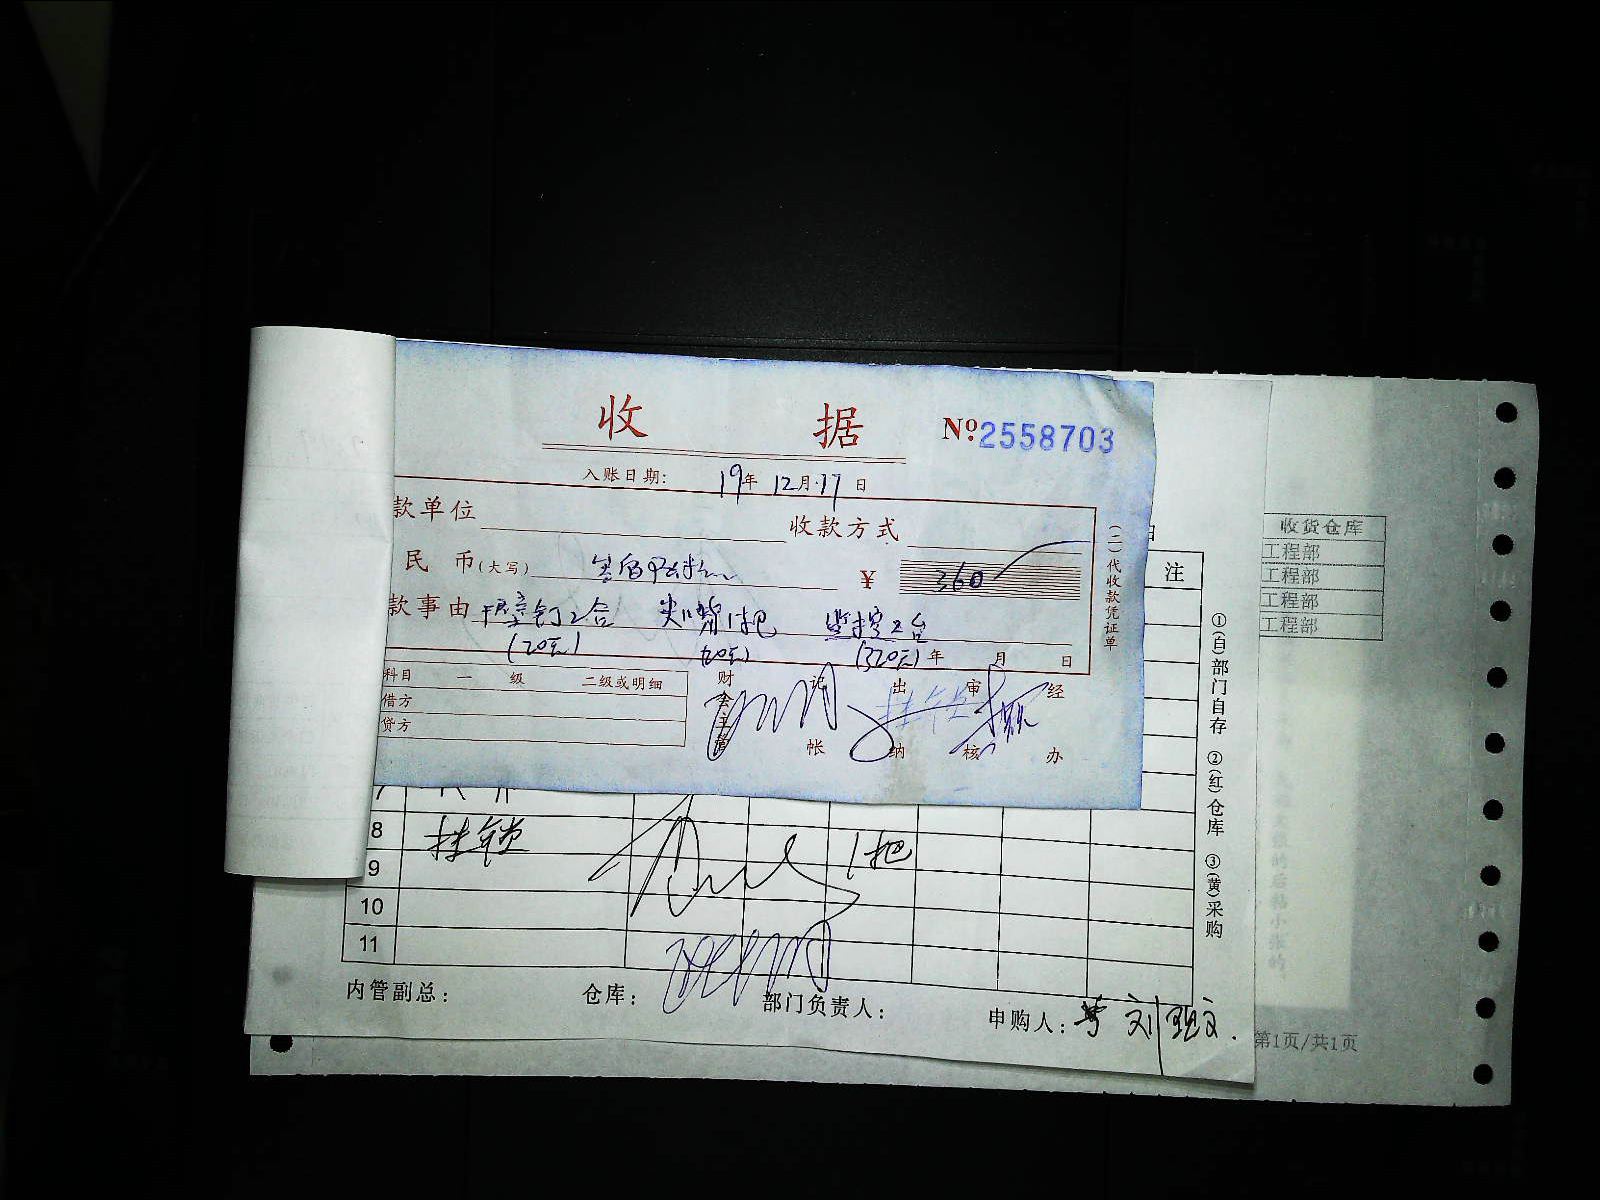 收 据 Nº2558703
入账日期： 19年 12月 17日
款单位 收款方式
民 币(大写) ¥ 360
款事由 干壁钉2合 尖嘴1把 监控2台
(20元) (20元) (320元) 年 月 日
科目 一 级 二级或明细
借方
贷方
财会主管 记帐 出纳 审核 经办
(二)代收款凭证单
注
收货仓库
工程部
工程部
工程部
工程部
7
8 挂锁 1把
9
10
11
①(自)部门自存 ②(红)仓库 ③(黄)采购
内管副总： 仓库： 部门负责人： 申购人：
第1页/共1页